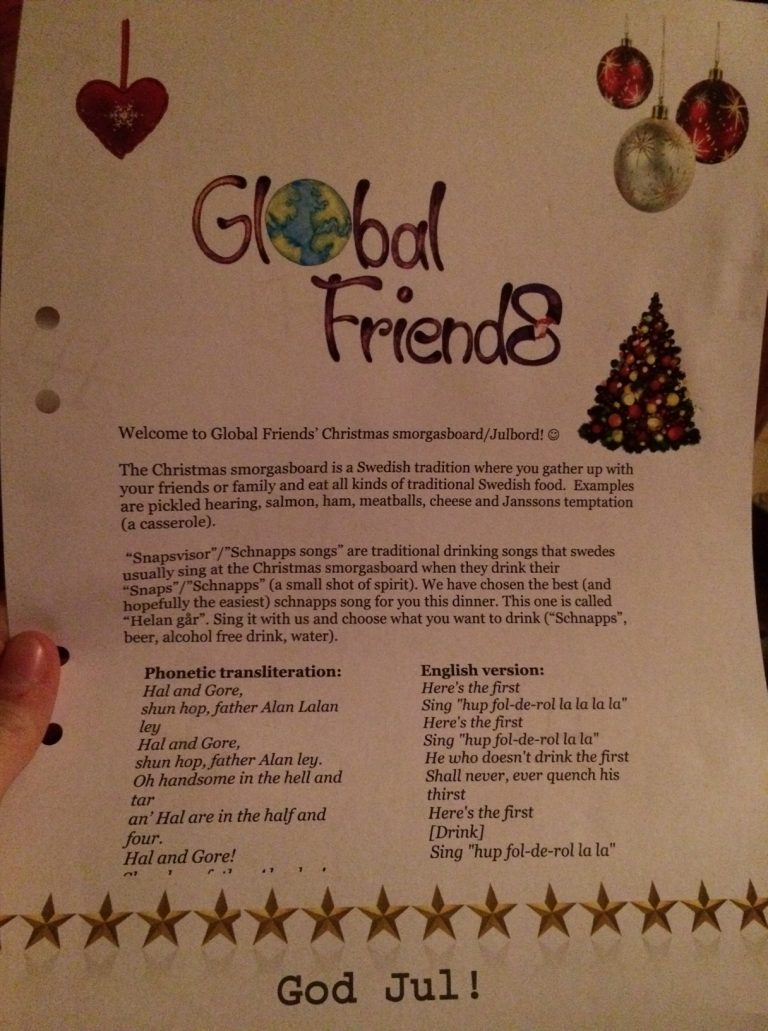 Global
Friends
Welcome to Global Friends' Christmas smorgasboard/Julbord! ☺
The Christmas smorgasboard is a Swedish tradition where you gather up with
your friends or family and eat all kinds of traditional Swedish food. Examples
are pickled hearing, salmon, ham, meatballs, cheese and Janssons temptation
(a casserole).
"Snapsvisor"/"Schnapps songs" are traditional drinking songs that swedes
usually sing at the Christmas smorgasboard when they drink their
"Snaps"/"Schnapps" (a small shot of spirit). We have chosen the best (and
hopefully the easiest) schnapps song for you this dinner. This one is called
"Helan går". Sing it with us and choose what you want to drink ("Schnapps",
beer, alcohol free drink, water).
Phonetic transliteration:
Hal and Gore,
shun hop, father Alan Lalan
ley
Hal and Gore,
shun hop, father Alan ley.
Oh handsome in the hell and
tar
an' Hal are in the half and
four.
Hal and Gore!
English version:
Here's the first
Sing "hup fol-de-rol la la la la"
Here's the first
Sing "hup fol-de-rol la la"
He who doesn't drink the first
Shall never, ever quench his
thirst
Here's the first
[Drink]
Sing "hup fol-de-rol la la"
God Jul!